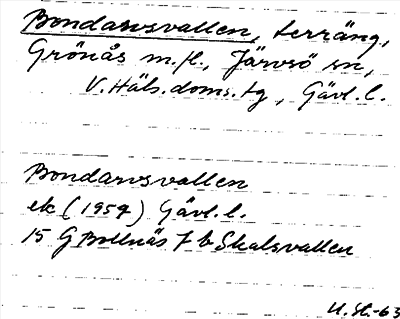 Bondarvsvallen, terräng,
Grönås m.fl., Järvsö sn,
V. Häls. doms. tg, Gävl. l.
Bondarvsvallen
ek (1954) Gävl. l.
15 G Bollnäs 7 b Skalsvallen
-63